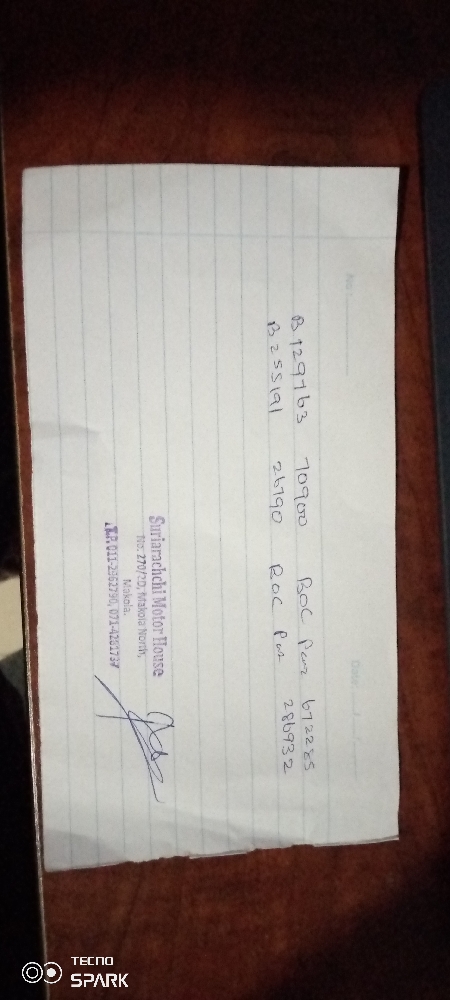 No:
Date:
B 129763 70900 BOC 672285
B 255191 26790 286932
Suriarachchi Motor House
No: 270/2D, Makola North,
Makola.
T.P. 011-2962790, 071-4261737
TECNO
SPARK